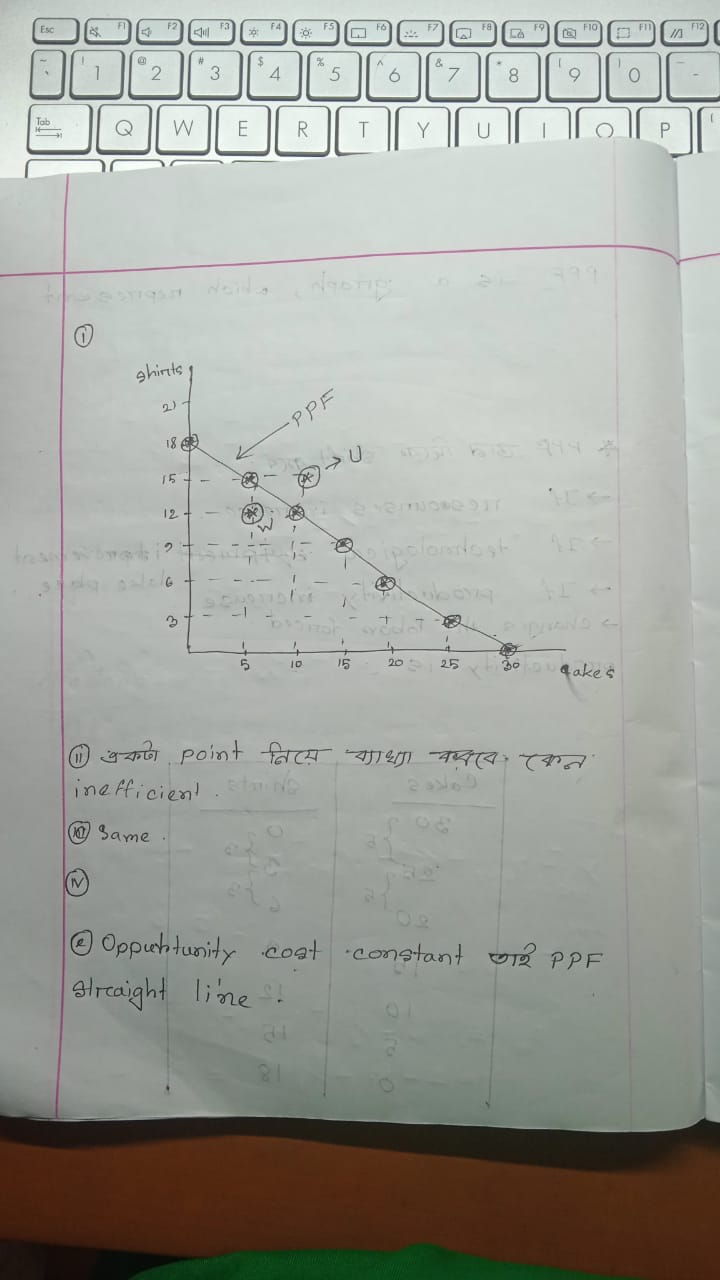 Esc F1 F2 F3 F4 F5 F6 F7 F8 F9 F10 F11 F12
~ ` ! 1 @ 2 # 3 $ 4 % 5 ^ 6 & 7 * 8 ( 9 ) 0 - 
Tab Q W E R T Y U I O P
i
shirts
21
PPF
18
U
15
12
W
9
6
3
5 10 15 20 25 30 cakes
ii একটা point নিয়ে ব্যাখ্যা করবে কেন
inefficient.
iii Same.
iv
e Oppurtunity cost constant তাই PPF
straight line.